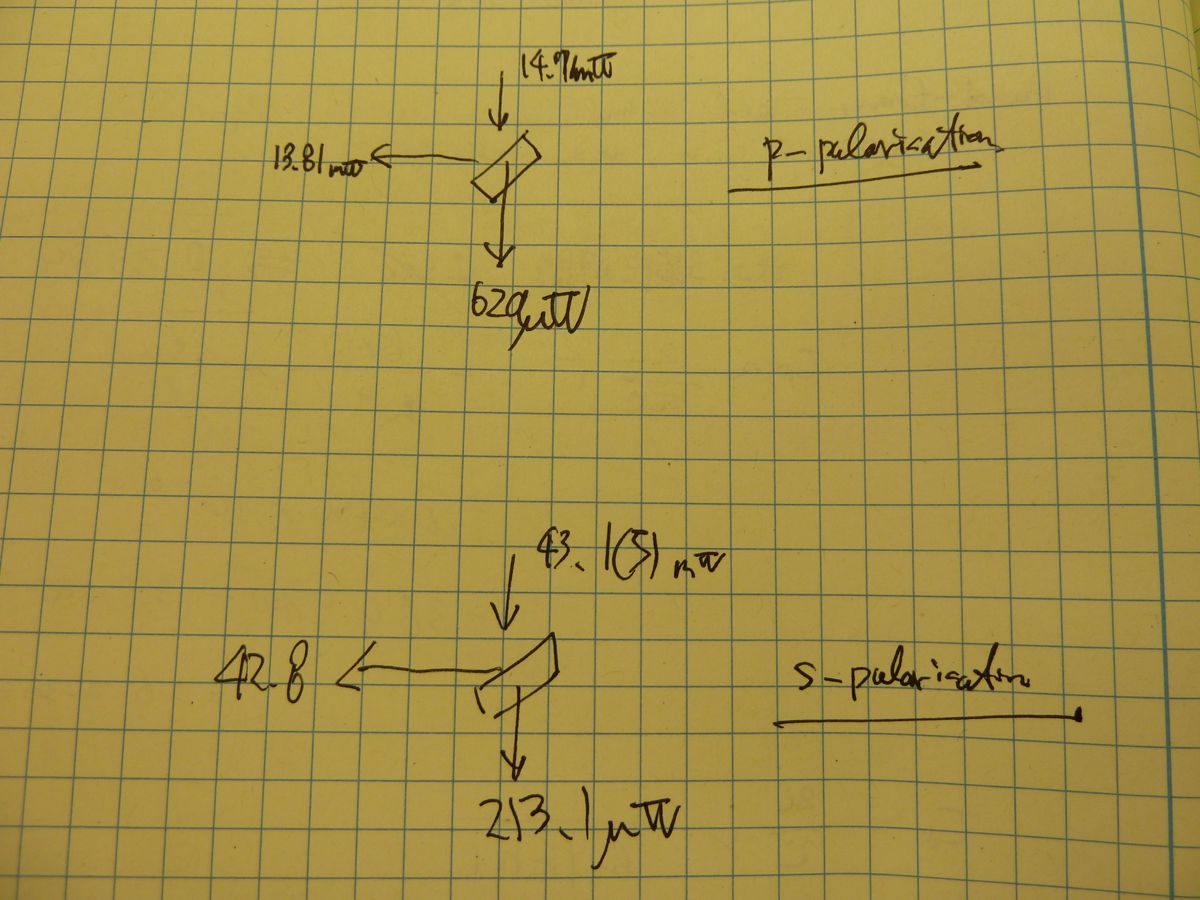 14.7mW
13.81mW
p-polarisation
629μW
43.1(5) mW
42.8
s-polarisation
213.1μW